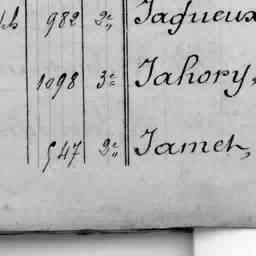 982 2e Jagueux
1098 3e Jahory,
547 2e Jamet,